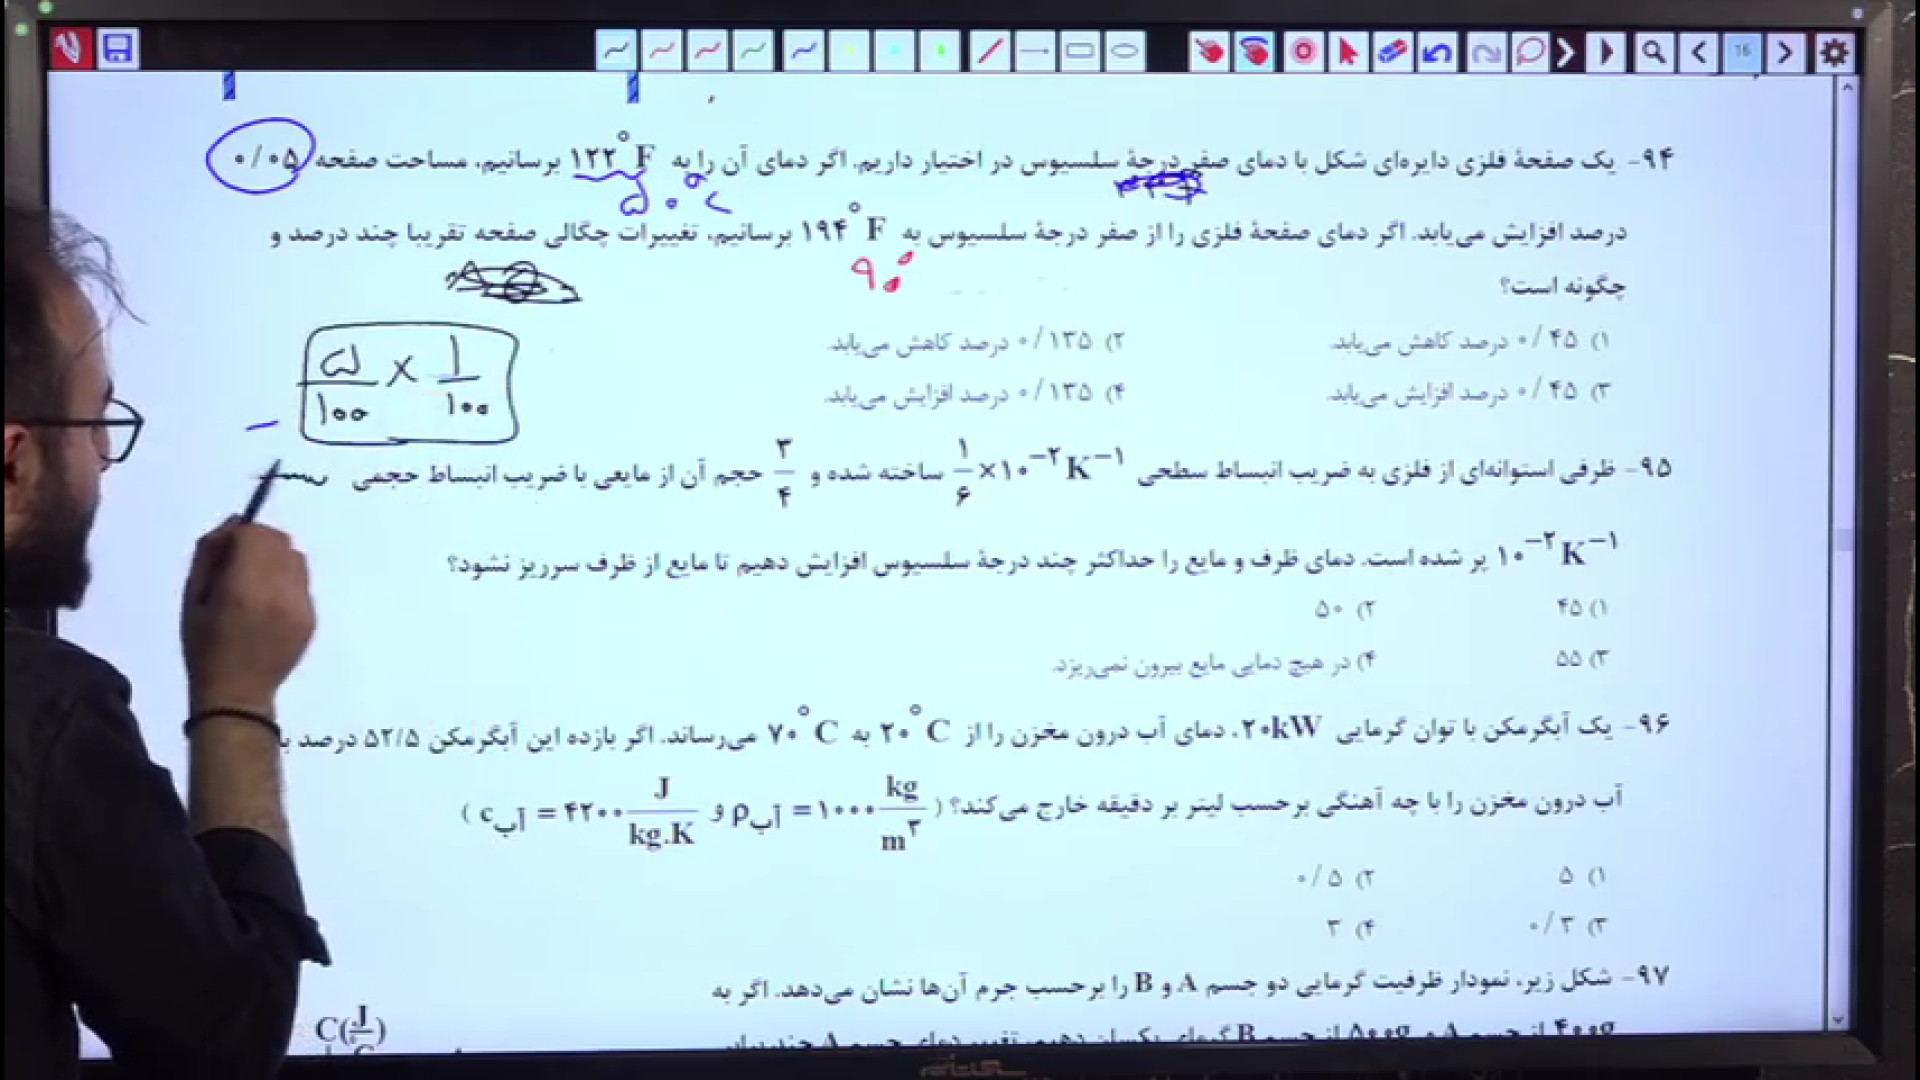 16
۹۴- یک صفحهٔ فلزی دایره‌ای شکل با دمای صفر درجهٔ سلسیوس در اختیار داریم. اگر دمای آن را به ۱۲۲°F برسانیم، مساحت صفحه ۰/۰۵
۵۰°C
درصد افزایش می‌یابد. اگر دمای صفحهٔ فلزی را از صفر درجهٔ سلسیوس به ۱۹۴°F برسانیم، تغییرات چگالی صفحه تقریبا چند درصد و
۹۰°
چگونه است؟
۱) ۰/۴۵ درصد کاهش می‌یابد.
۲) ۰/۱۳۵ درصد کاهش می‌یابد.
۳) ۰/۴۵ درصد افزایش می‌یابد.
۴) ۰/۱۳۵ درصد افزایش می‌یابد.
۵/۱۰۰ × ۱/۱۰۰
۹۵- ظرفی استوانه‌ای از فلزی به ضریب انبساط سطحی ۱/۶ ×۱۰⁻²K⁻¹ ساخته شده و ۳/۴ حجم آن از مایعی با ضریب انبساط حجمی
۱۰⁻²K⁻¹ پر شده است. دمای ظرف و مایع را حداکثر چند درجهٔ سلسیوس افزایش دهیم تا مایع از ظرف سرریز نشود؟
۱) ۴۵
۲) ۵۰
۳) ۵۵
۴) در هیچ دمایی مایع بیرون نمی‌ریزد.
۹۶- یک آبگرمکن با توان گرمایی ۲۰kW، دمای آب درون مخزن را از ۲۰°C به ۷۰°C می‌رساند. اگر بازده این آبگرمکن ۵۲/۵ درصد
آب درون مخزن را با چه آهنگی برحسب لیتر بر دقیقه خارج می‌کند؟ (ρآب = ۱۰۰۰ kg/m³ و cآب = ۴۲۰۰ J/kg.K)
۱) ۵
۲) ۰/۵
۳) ۰/۳
۴) ۳
۹۷- شکل زیر، نمودار ظرفیت گرمایی دو جسم A و B را برحسب جرم آن‌ها نشان می‌دهد. اگر به
۴۰۰g از جسم A و ۵۰۰g از جسم B گرمای یکسان دهیم، تغییر دمای جسم A چند برابر
C(J/